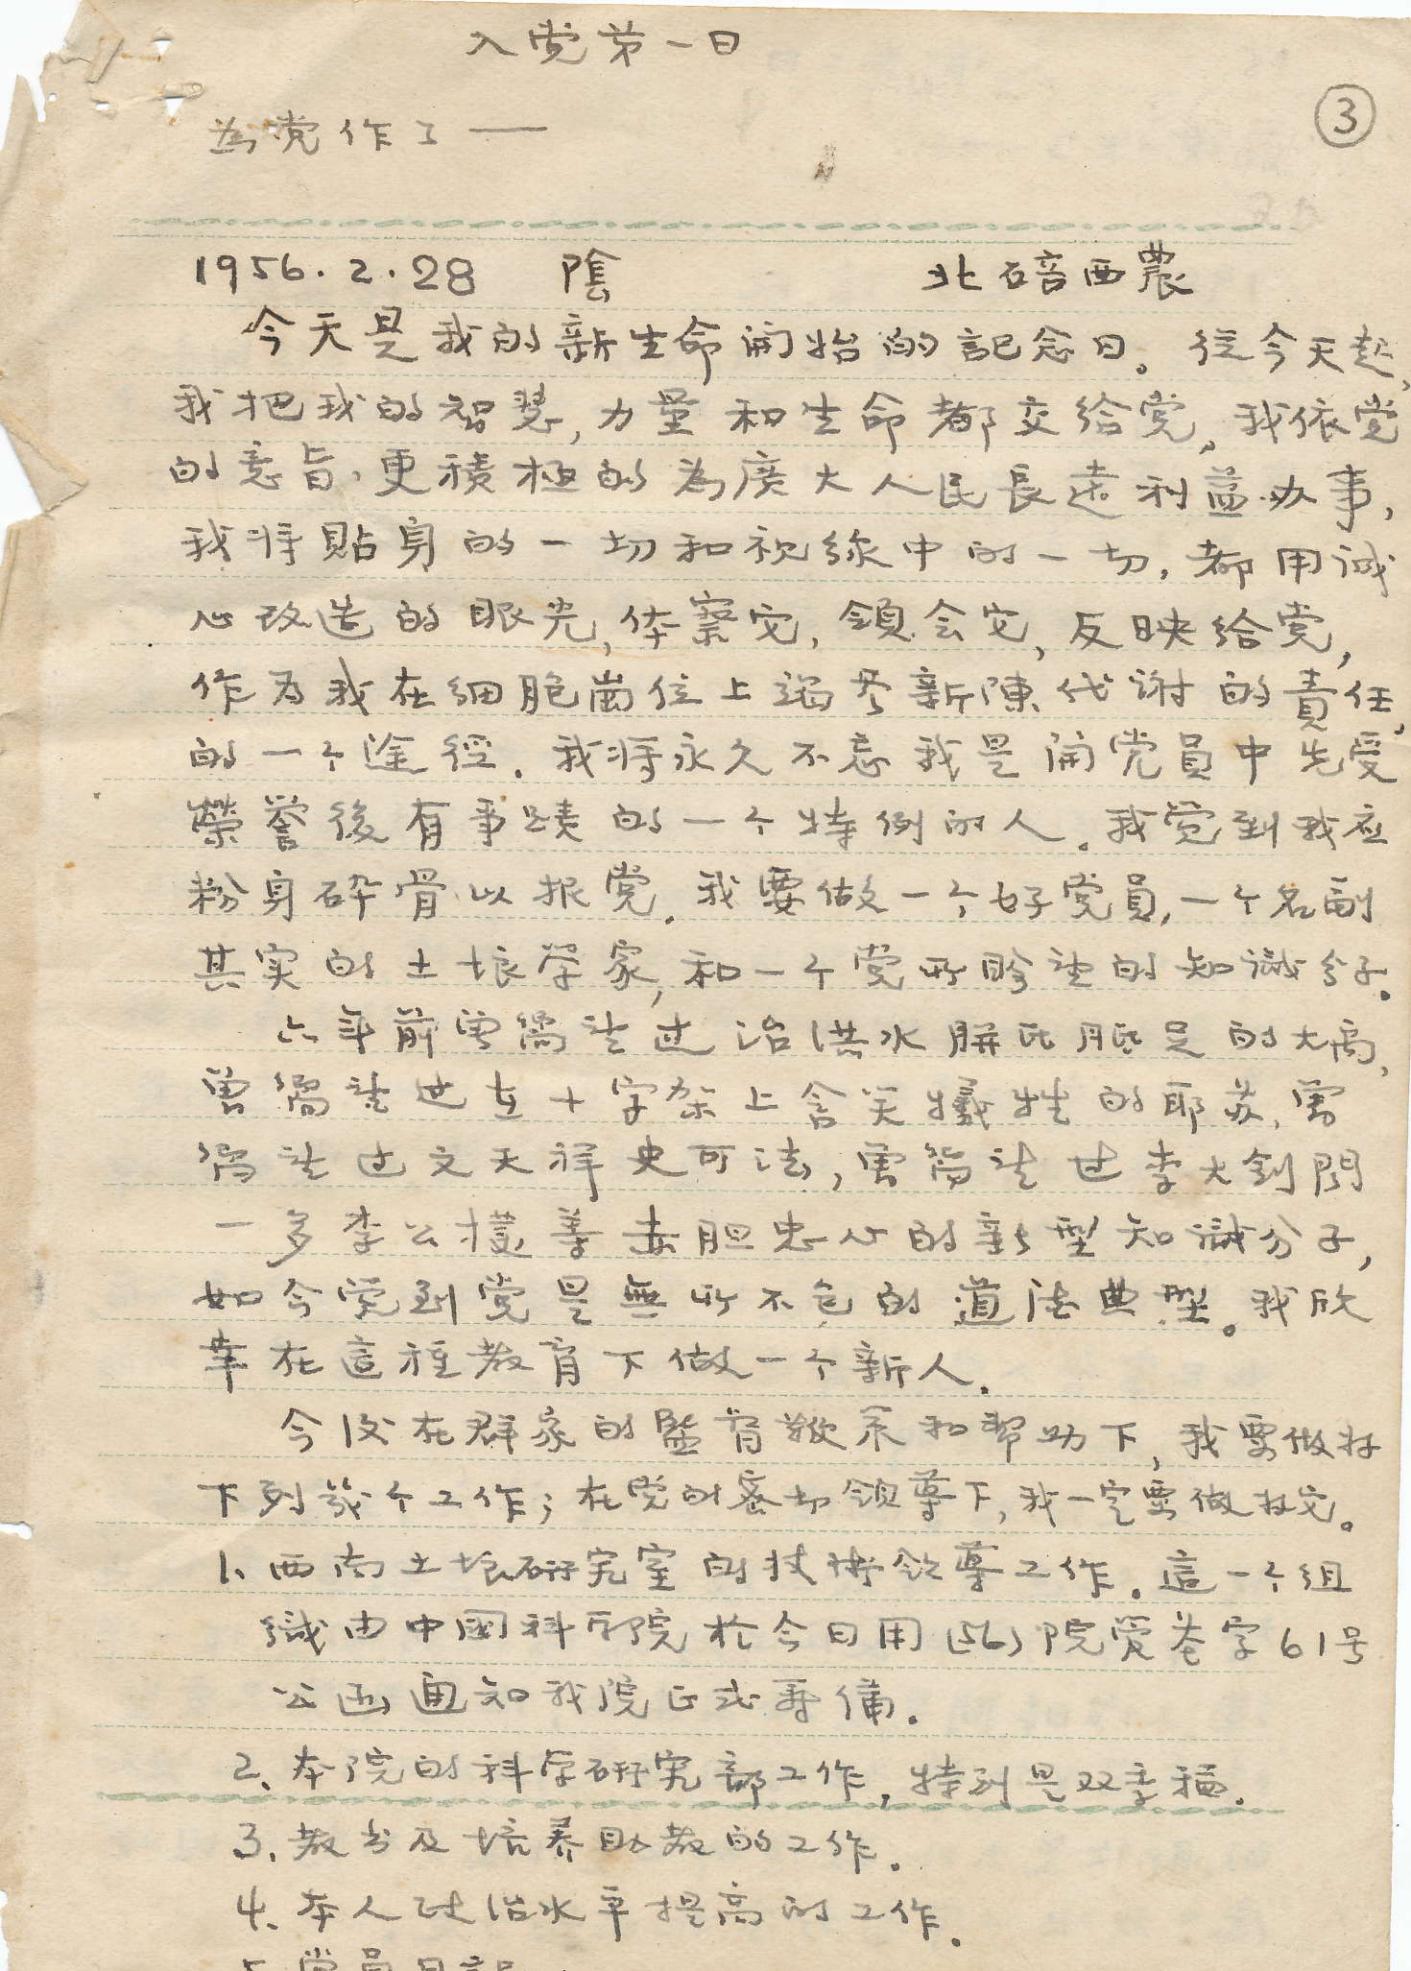 入党第一日
③
為党作了——
1956.2.28 陰 北碚西農
今天是我的新生命開始的記念日。從今天起,
我把我的智慧,力量和生命都交給党,我依党
的意旨,更積極的為廣大人民長遠利益办事,
我将貼身的一切和視線中的一切,都用诚
心改造的眼光,体察它,領会它,反映給党,
作为我在細胞崗位上竭尽新陳代谢的責任,
的一个途徑.我将永久不忘我是開党員中先受
榮誉後有事蹟的一个特例的人.我覚到我应
粉身碎骨以报党.我要做一个好党員,一个名副
其实的土壤学家,和一个党所盼望的知識分子.
六年前曾嚮往过治洪水胼氐胝足的大禹,
曾嚮往过在十字架上含笑犧牲的耶苏,曾
嚮往过文天祥史可法,曾嚮往过李大釗聞
一多李公樸等赤胆忠心的新型知識分子,
如今覚到党是無所不包的道德典型。我欣
幸在這種教育下做一个新人.
今后在群家的監督鞭策和帮助下,我要做好
下列幾个工作;在党的密切領導下,我一定要做好它。
1、西南土壤研究室的技術領導工作.這一个组
織由中國科学院於今日用(56)院爱巻字61号
公函通知我院正式筹備.
2、本院的科学研究部工作,特别是双季稻.
3、教书及培养助教的工作.
4、本人政治水平提高的工作.
5、党員日記